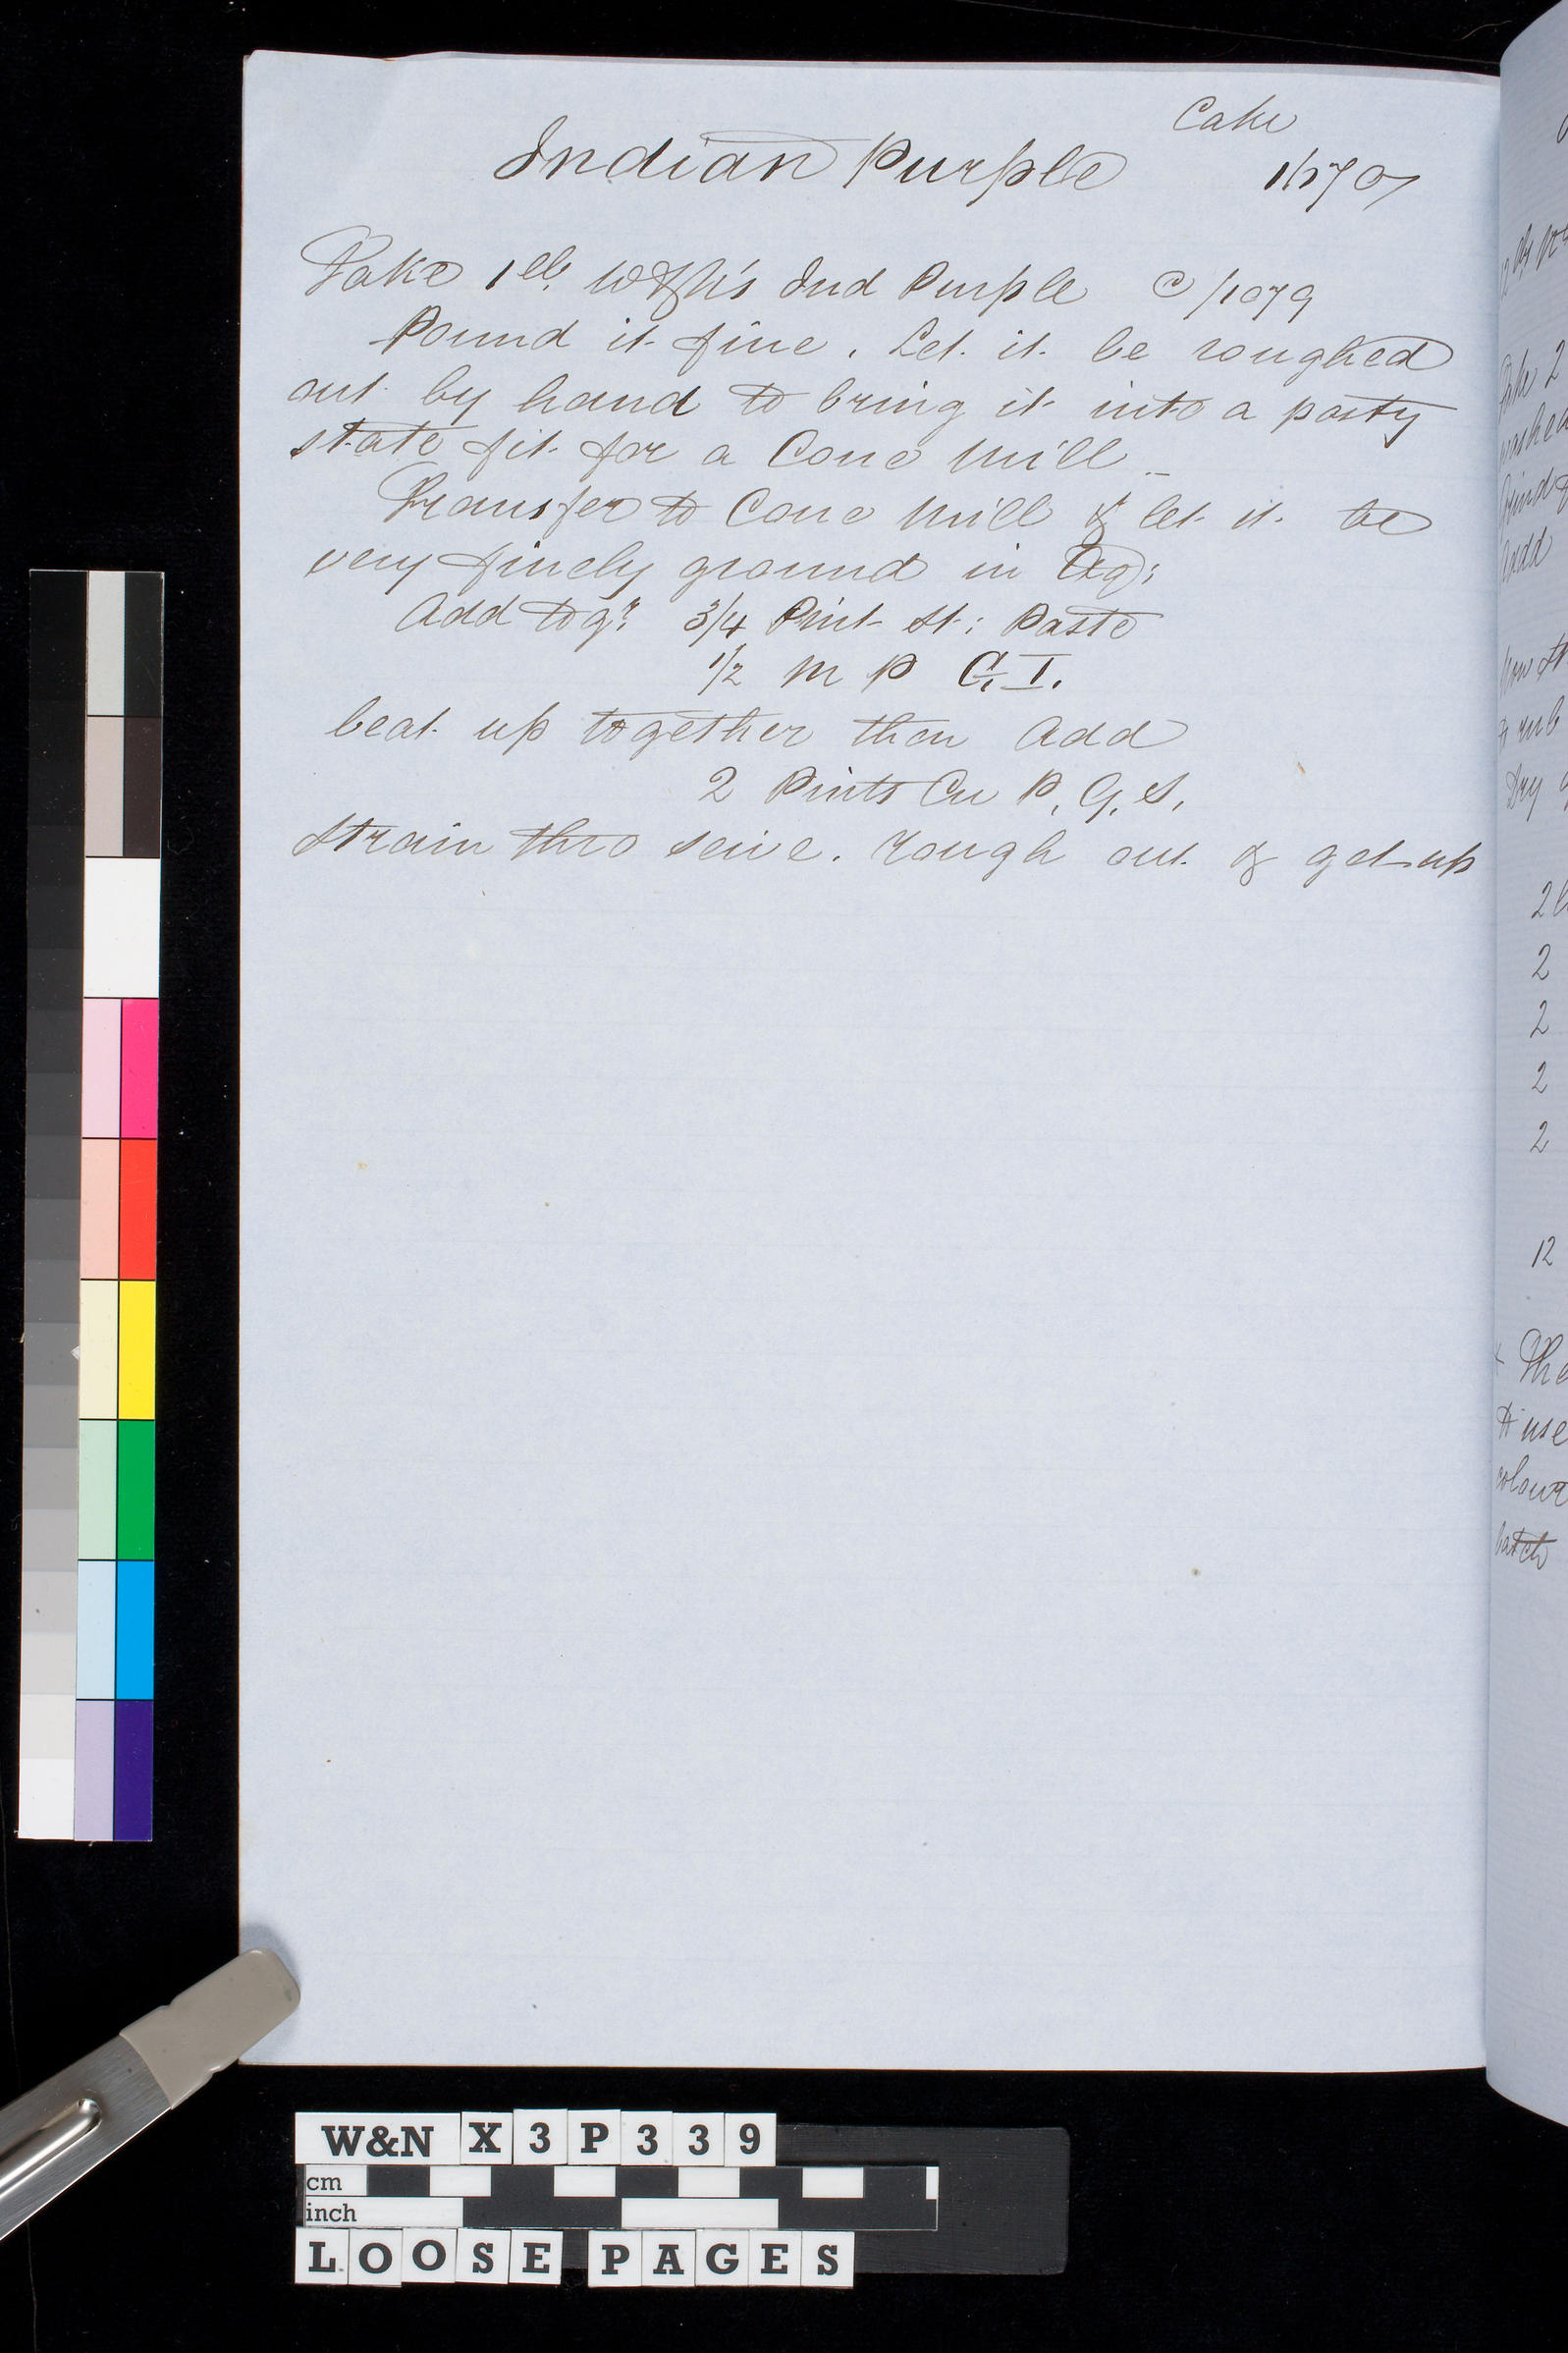 Cake
Indian Purple
Take 1 lb Ind Purple C/1079
Pound it fine. Let it be roughed
out by hand to bring it into a pasty
state fit for a Cone Mill _
Transfer to Cone Mill & let it be
very finely ground in Aq:
Add togr. 3/4 Pint St: Paste
1/2 M P G.T.
beat up together then add
2 Pints Cu P. G. S.
Strain thro seive. rough out & get up
12
Take 2
washed
Grind
Add
Dry
2
2
2
2
12
The
to use
colour
batch
W&N X3P339
cm
inch
LOOSE PAGES